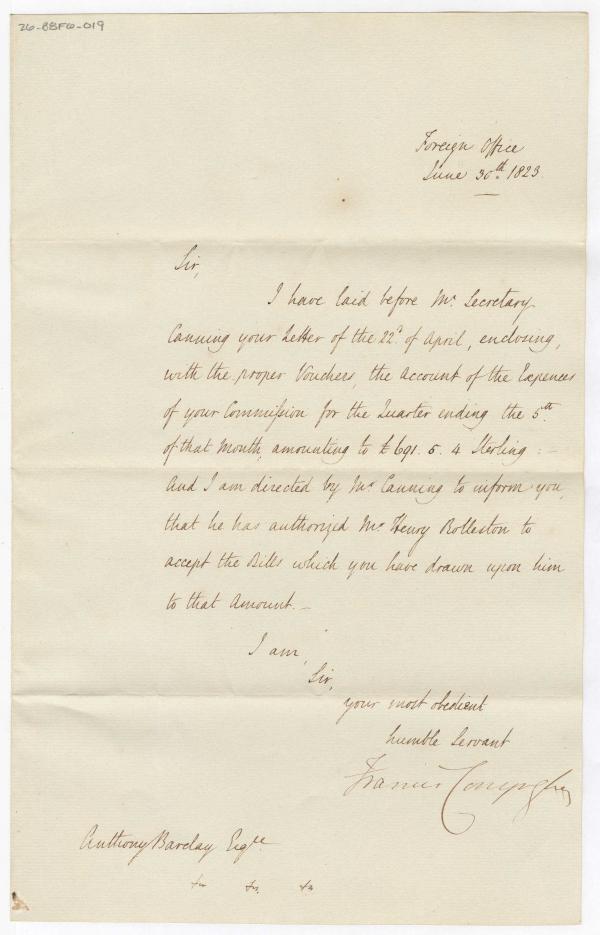 26-BBFG-019
Foreign Office
June 30th 1823.
Sir,
I have laid before Mr. Secretary
Canning your Letter of the 22d. of April, enclosing,
with the proper Vouchers, the Account of the Expences
of your Commission for the Quarter ending the 5th.
of that Month, amounting to £691. 5. 4 Sterling: –
And I am directed by Mr. Canning to inform you,
that he has authorized Mr. Henry Rolleston to
accept the Bills which you have drawn upon him
to that Amount. –
I am,
Sir,
your most obedient
humble Servant
Francis Conyngham
Anthony Barclay Esqre.